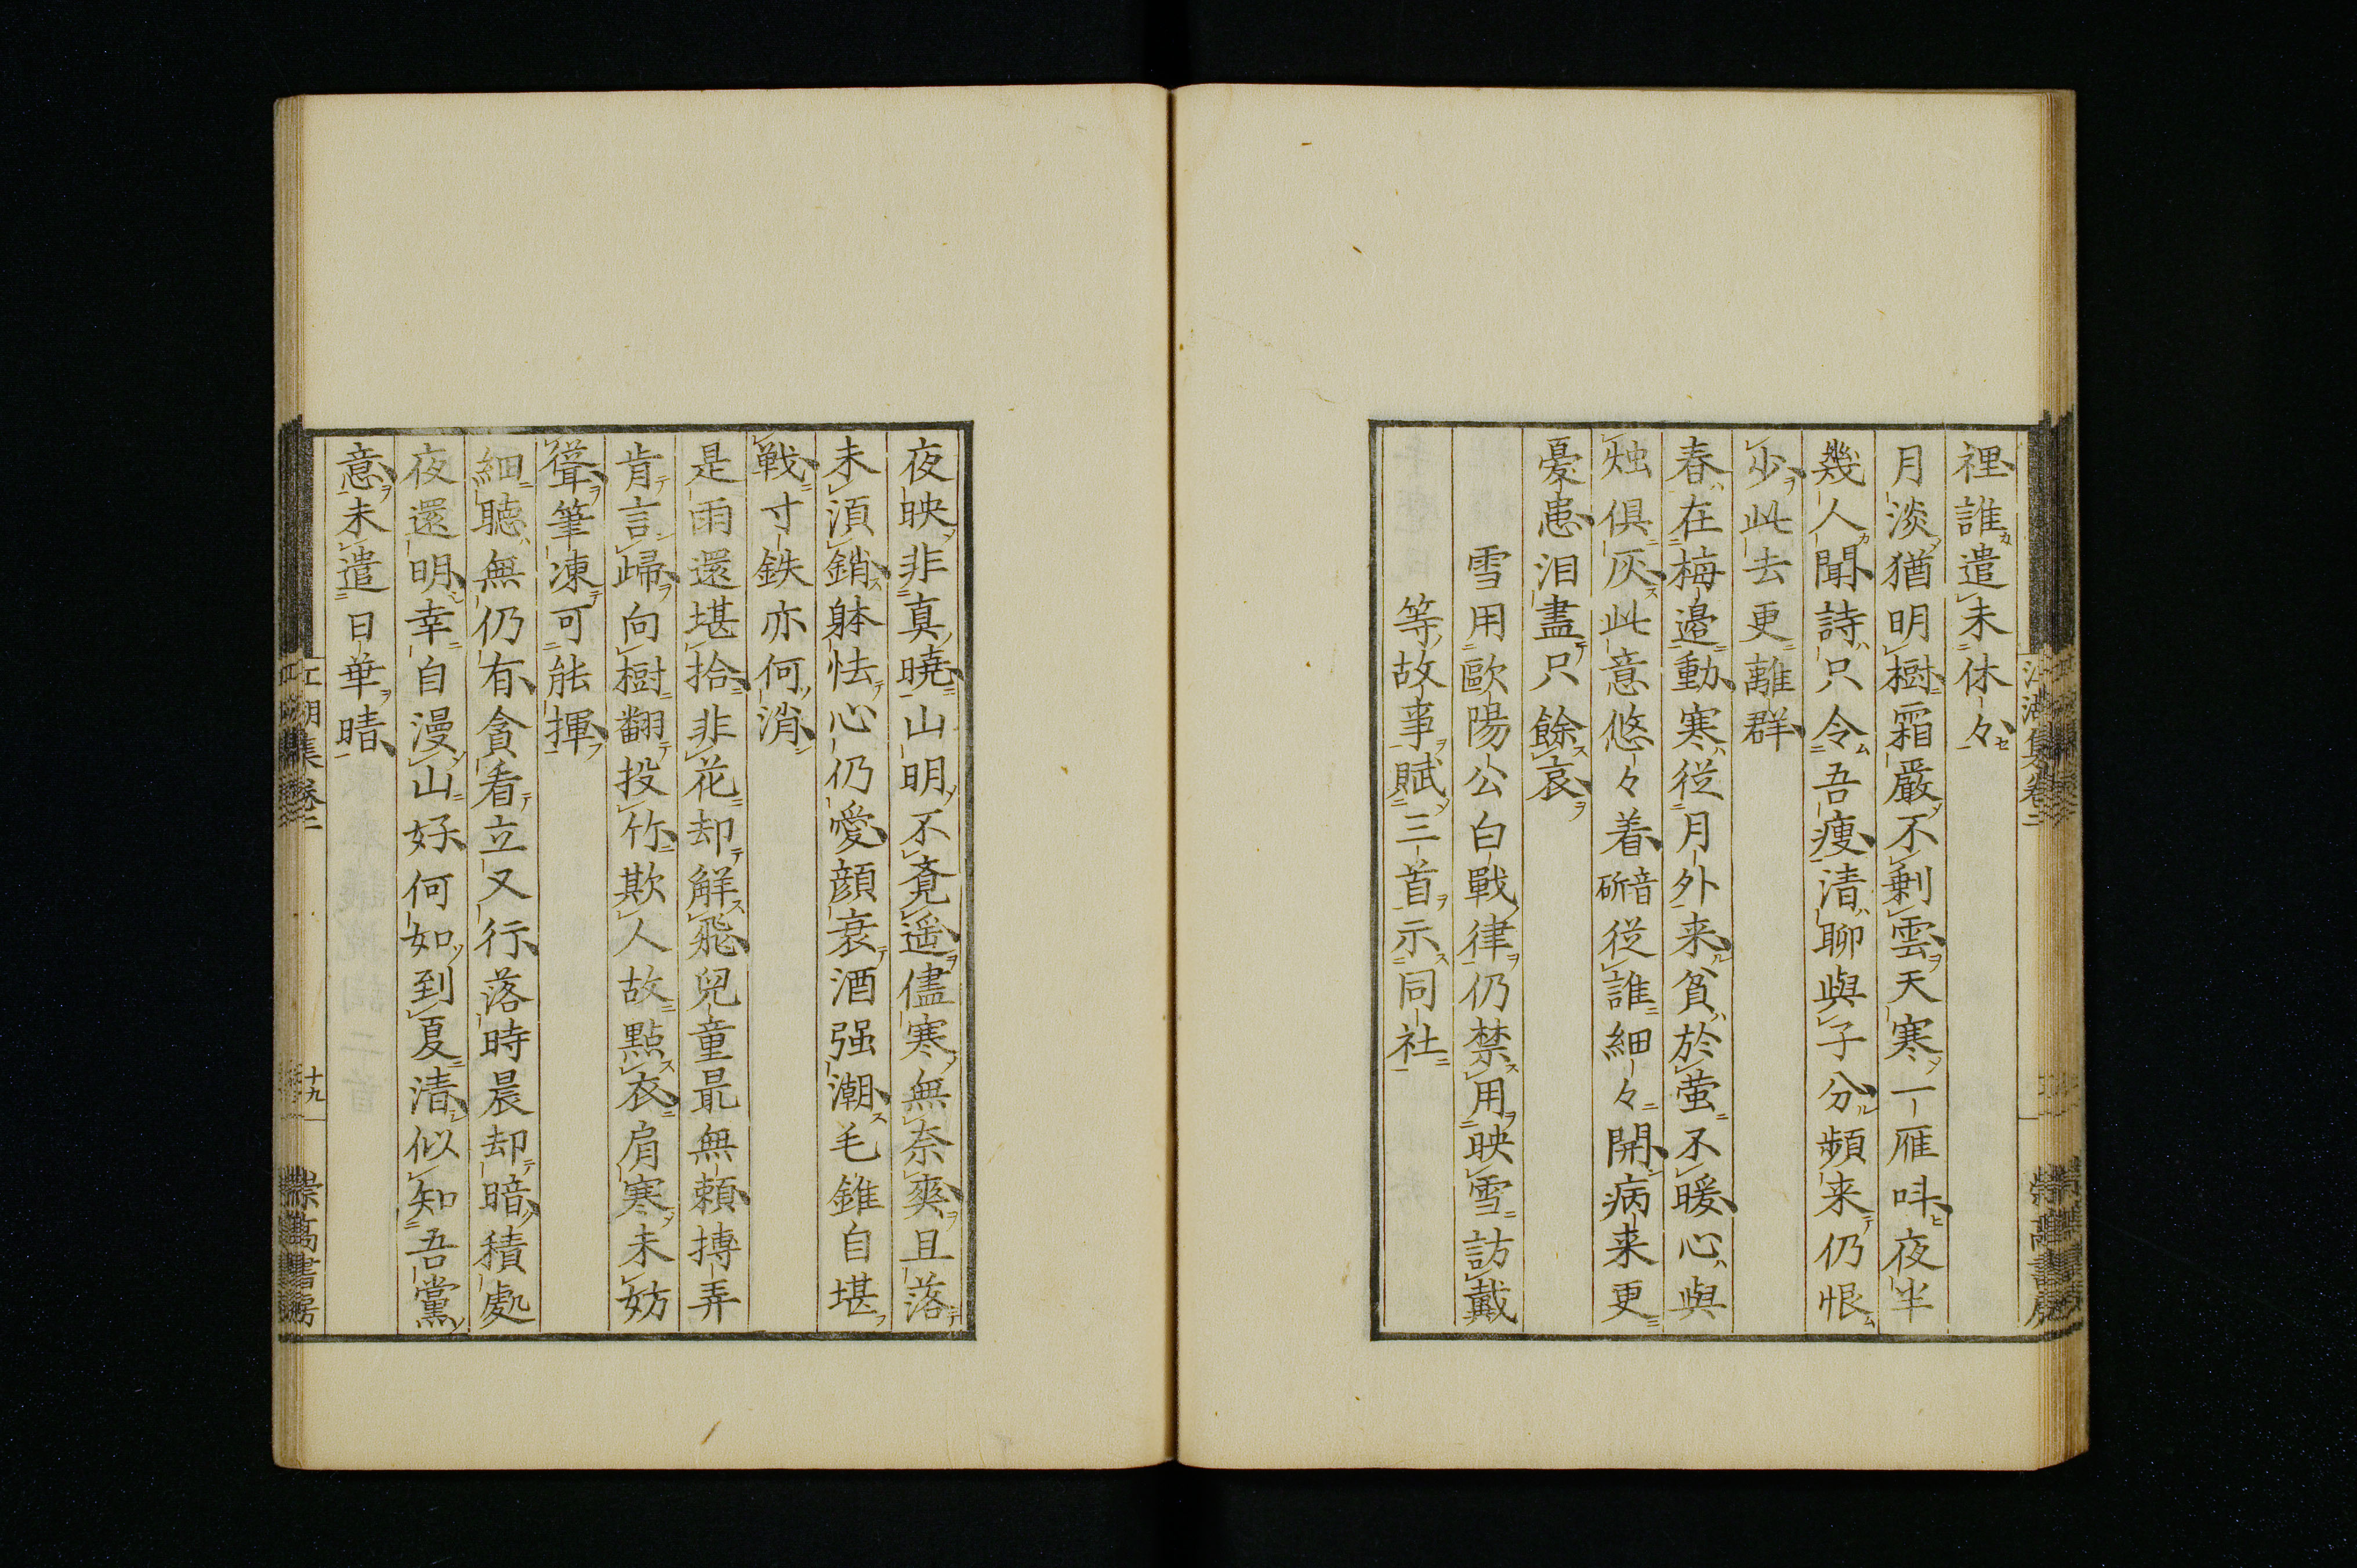 裡誰遣未休々
月淡猶明樹霜嚴不剰雲天寒一雁呌夜半
幾人聞詩只令吾痩清聊與子分頻来仍恨
少此去更離群
春在梅邉動寒従月外来貧於蛍不暖心與
燭倶灰此意悠々着齗音従誰細々開病来更
憂患泪盡只餘哀
雪用歐陽公白戰律仍禁用映雪訪戴
等故事賦三首示同社
夜映非真曉山明不覔遥儘寒無奈爽且落
未須銷躰怯心仍愛顔衰酒强潮毛錐自堪
戦寸鉄亦何消
是雨還堪拾非花却解飛兒童最無頼摶弄
肯言歸向樹翻投竹欺人故點衣肩寒未妨
聳筆凍可能揮
細聴無仍有貪看立又行落時晨却暗積處
夜還明幸自漫山好何如到夏清似知吾黨
意未遣日華晴
江湖集巻二
十九